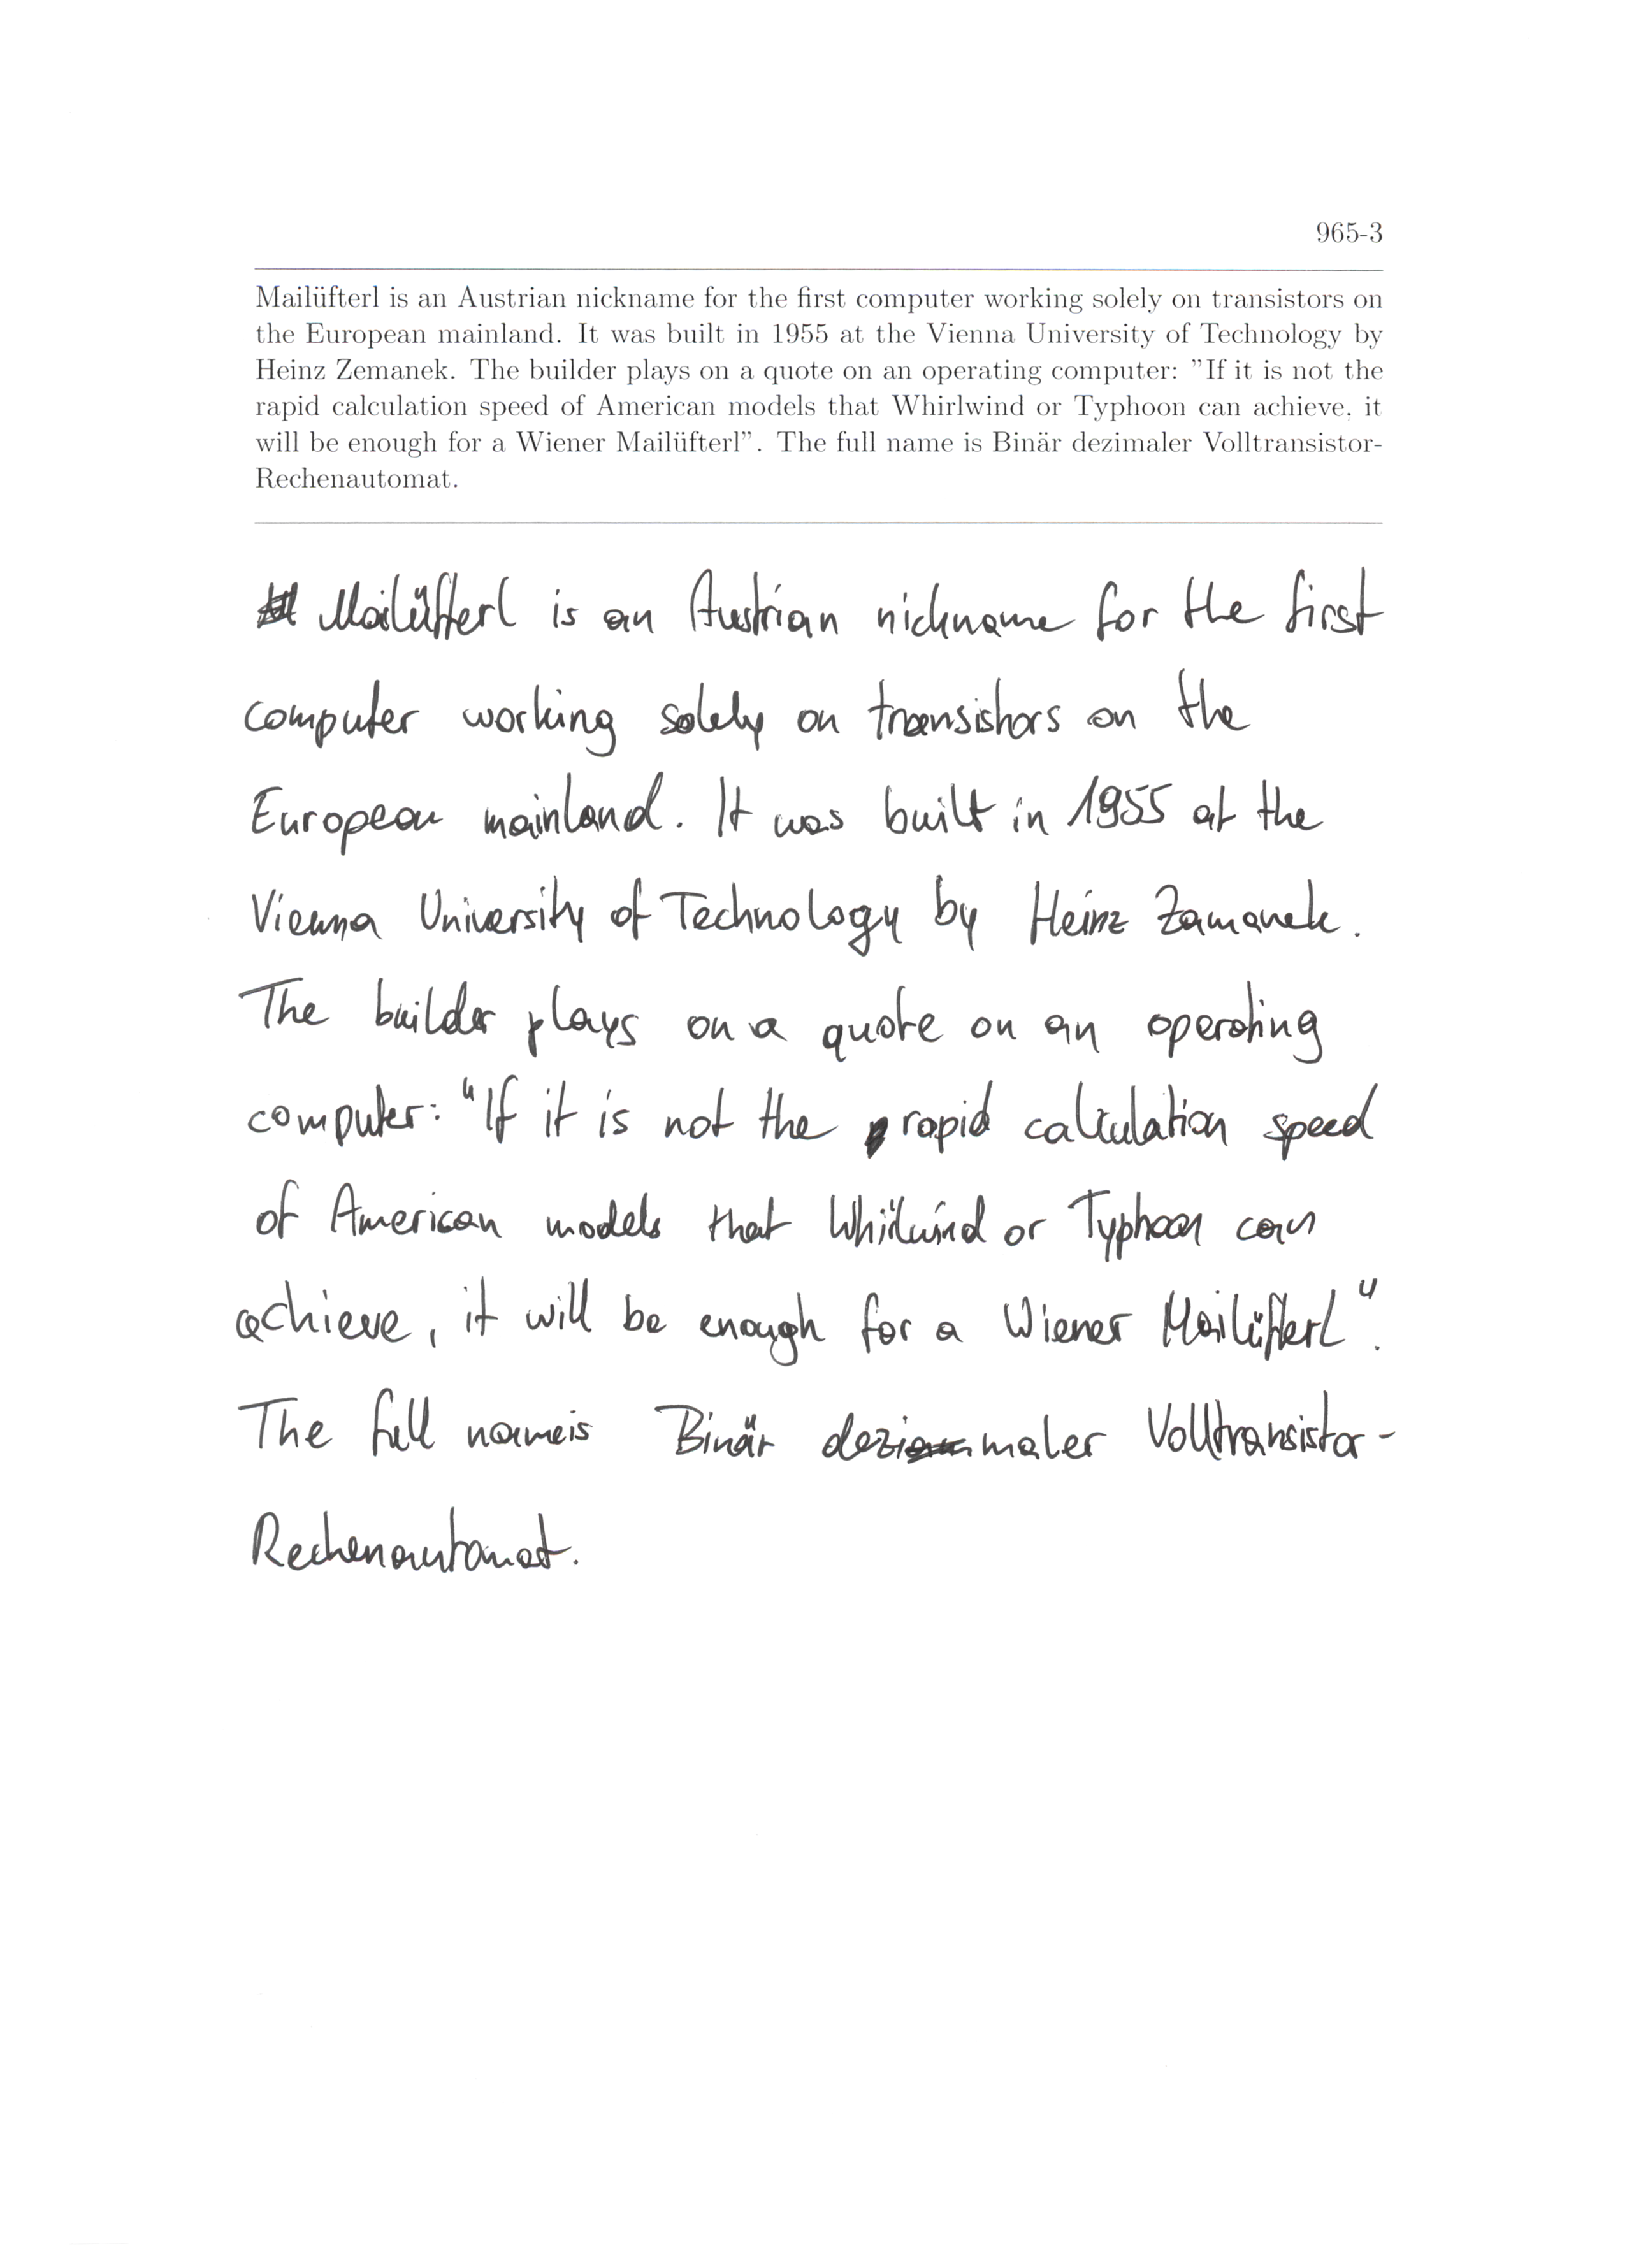 965-3
Mailüfterl is an Austrian nickname for the first computer working solely on transistors on
the European mainland. It was built in 1955 at the Vienna University of Technology by
Heinz Zemanek. The builder plays on a quote on an operating computer: ”If it is not the
rapid calculation speed of American models that Whirlwind or Typhoon can achieve, it
will be enough for a Wiener Mailüfterl”. The full name is Binär dezimaler Volltransistor-
Rechenautomat.
Mailüfterl is an Austrian nickname for the first
computer working solely on transistors on the
European mainland. It was built in 1955 at the
Vienna University of Technology by Heinz Zamanek.
The builder plays on a quote on an operating
computer: "If it is not the rapid calculation speed
of American models that Whirlwind or Typhoon can
achieve, it will be enough for a Wiener Mailüfterl".
The full nameis Binär dezimaler Volltransistor-
Rechenautomat.